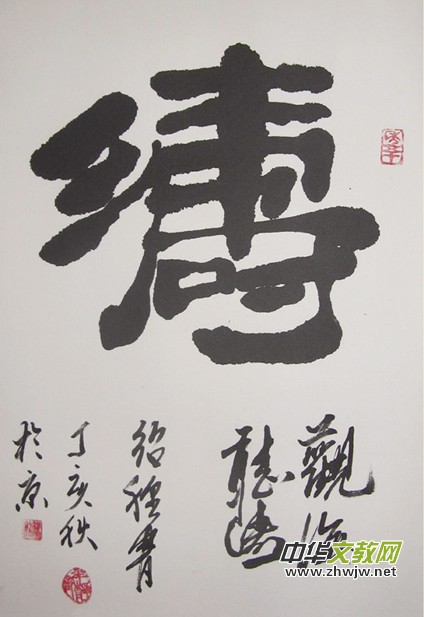 濤
觀海
聽濤
丁亥秋
於京
中华文教网
www.zhwjw.net